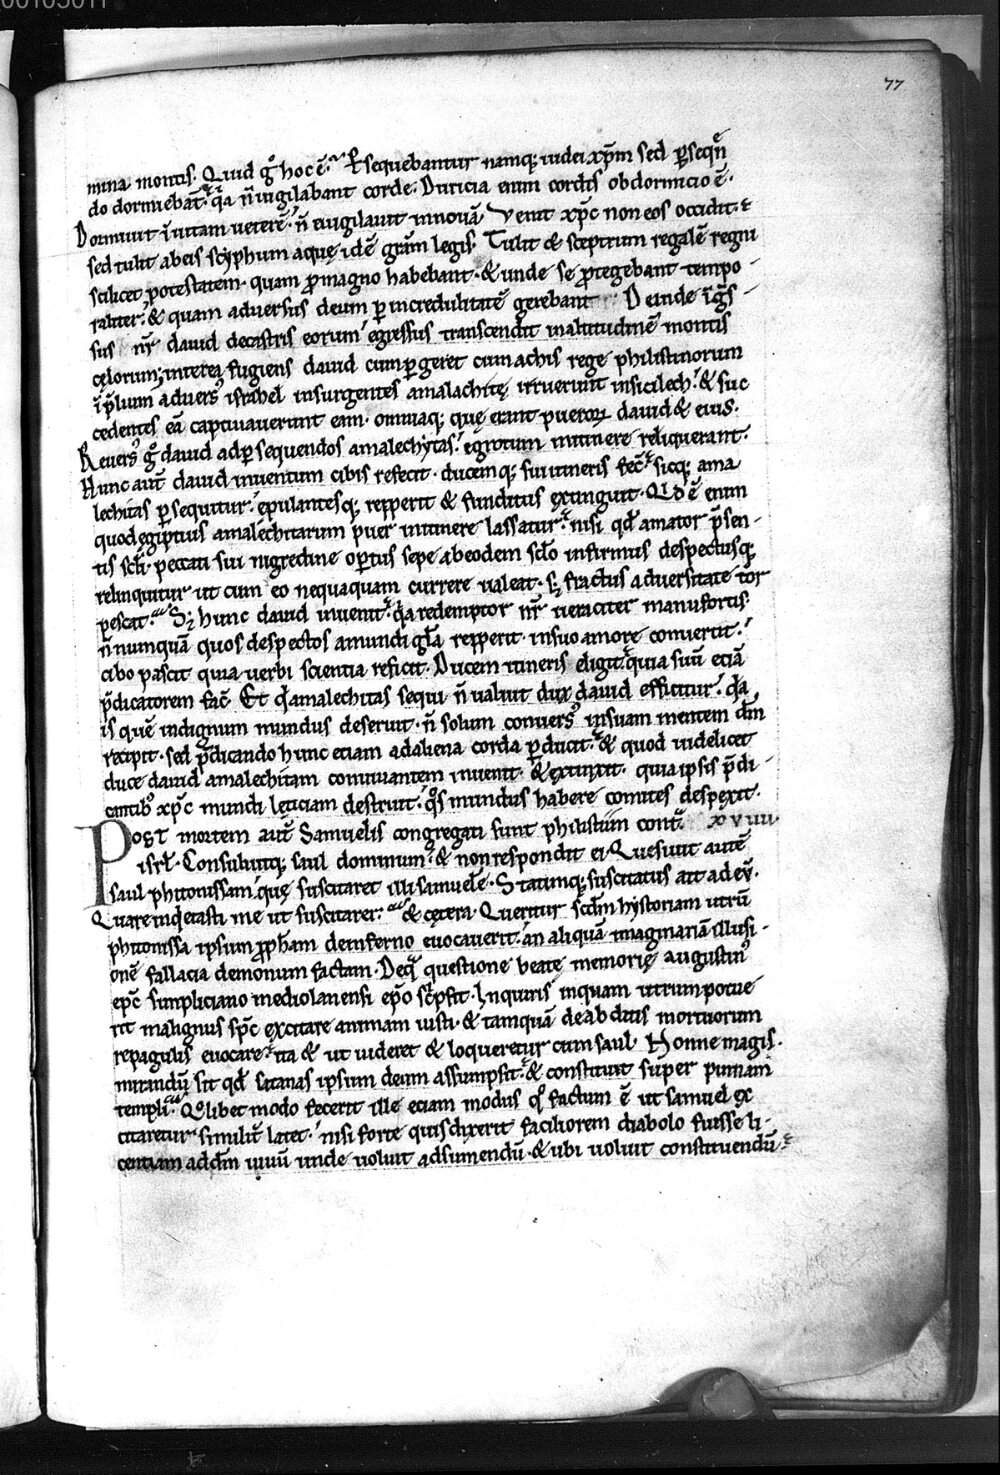 00105011
77
mina montis. Quid g̊ hoc ē? Psequebantur namq; iudei xp̄m sed p̱seqn̄
do dormiebāt. q̄a n̄ uigilabant corde. Duricia enim cordis obdormicio ē.
Dormiuit ī uitam ueterē. n̄ euigilauit innouā. Venit xp̄c non eos occidit.
sed tulit abeis scyphum aquę idē gr̄am legis. Tulit & sceptrum regalē regni
scilicet potestatem. quam p̱ magno habebant. & unde se p̱tegebant tempo
raliter. & quam aduersus deum p̱ incredulitatē gerebant. Deinde īgs̄
sus nr̄ dauid decastris eorum egressus transcendit inaltitudinē montis
cęlorum; interea fugiens dauid cum p̱geret cum achis rege philistinorum
ī p̄lium aduers' israhel insurgentes amalachitę irruerunt insicilech. & suc
cedentes eā captiuauerunt eam. omniaq; quę erant pueroꝝ dauid & eius.
Reuers' g̊ dauid adp̱sequendos amalechytas. egrotum initinere reliquerant.
Hunc aut̄ dauid inuentum cibis refecit. ducemq; sui itineris fec̄. sicq; ama
lechitas p̱sequitur. epulantesq; repperit & funditus extinguit. Qd ē enim
quod egiptius amalechitarum puer initinere lassatur. nisi qd̄ amator p̄sen
tis scl̄i. peccati sui nigredine op̱tus sepe abeodem scl̄o infirmus despectusq;
relinquitur ut cum eo nequaquam currere ualeat. s; fractus aduersitate tor
pescat. S; hunc dauid inuenit. q̄a redemptor nr̄ ueraciter manufortis.
n̄ numquā quos despectos amundi gl̄a repperit. insuo amore conuertit.
cibo pascit quia uerbi scientia reficit. Ducem itineris eligit. quia suū etiā
p̄dicatorem fac̄. Et q̄ amalechitas sequi n̄ ualuit dux dauid efficitur. q̄a
is quē indignum mundus deseruit. n̄ solum conuers' insuam mentem dm̄
recipit. sed p̄dicando hunc etiam adaliena corda p̱ducit. & quod uidelicet
duce dauid amalechitam conuiuantem inuenit. & extinxit. quia ipsis p̄di
cantib; xp̄c mundi leticiam destruit. q̊s mundus habere comites despexit.
Post mortem aut̄ Samuelis congregati sunt philistiim cont̄ xviiii.
isrł. Consuluitq; saul dominum. & non respondit ei. Quesiuit autē
saul phitonissam quę suscitaret illi samuelē. Statimq; suscitatus ait ad eū.
Quare inqietasti me ut suscitarer. & cętera. Queritur scdm̄ hystoriam utrū
phitonissa ipsum p̱ph̄am deinferno euocauerit. an aliquā imaginariā illusi
onē fallacia demonum factam. Deq̄ questione beatę memorię augustin'
epc̄ simpliciano mediolanensi ep̄o sc̄psit. Inquiris inquam utrum potue
rit malignus sp̄c excitare animam iusti. & tamquā deabditis mortuorum
repagulis euocare. ita & ut uideret & loqueretur cum saul. Nonne magis
mirandū sit qd̄ satanas ipsum deum assumpsit. & constituit super pinnam
templi. Qolibet modo fecerit ille etiam modus q̊ factum ē ut samuel ex
citaretur similit̄ latet. nisi forte quis dixerit faciliorem diabolo fuisse li
centiam addm̄ uiuū unde uoluit adsumendū. & ubi uoluit constituendū.